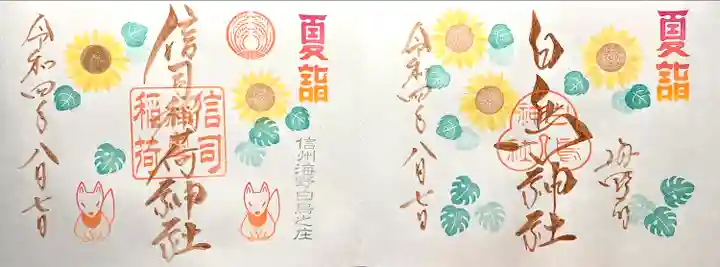 夏詣
信州海野白鳥之庄
信司稲荷神社
信司
稲荷
令和四年八月七日
夏詣
海野宿
白鳥神社
白鳥
神社
令和四年八月七日